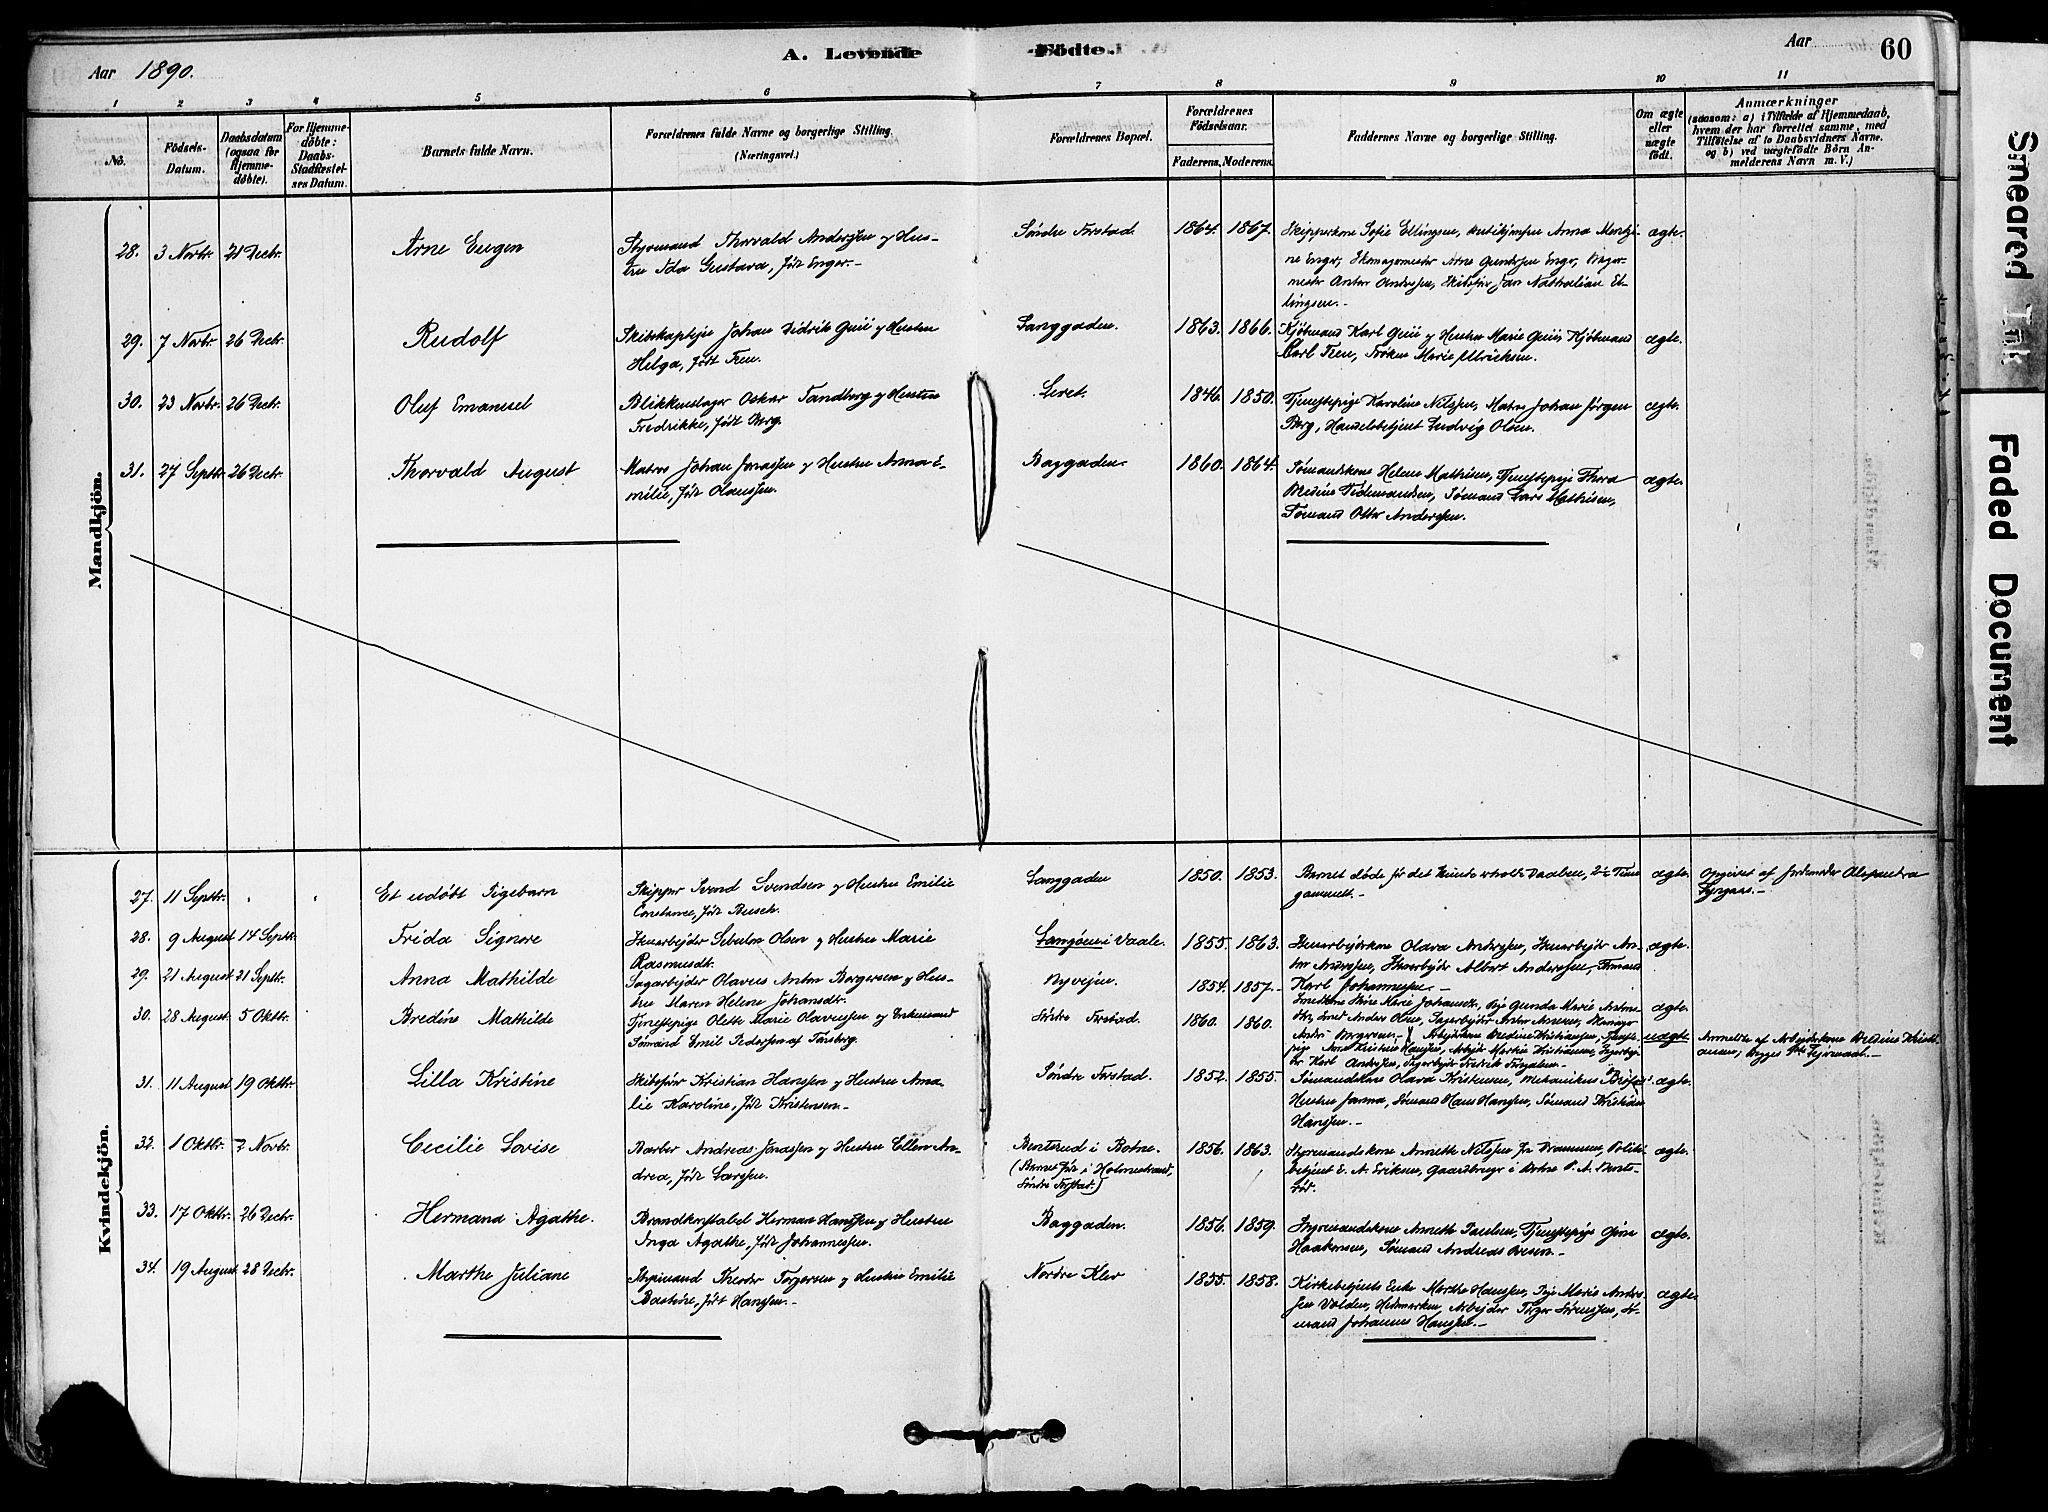 Aar 1890.
A. Levende Födte.
Aar
60
1 2 3 4 5 6 7 8 9 10 11
No.
Födsels-
Datum.
Daabsdatum
(ogsaa for
Hjemme-
döbte).
For Hjemme-
döbte:
Daabs-
Stadfæstel-
ses Datum.
Barnets fulde Navn.
Forældrenes fulde Navne og borgerlige Stilling.
(Næringsvei.)
Forældrenes Bopæl.
Forældrenes
Födselsaar.
Faderens. Moderens.
Faddernes Navne og borgerlige Stilling.
Om ægte
eller
uægte
födt.
Anmærkninger
(saasom: a) i Tilfælde af Hjemmedaab,
hvem der har forrettet samme, med
Tilföielse af to Daabsvidners Navne.
og b) ved uægtefödte Börn An-
melderens Navn m. V.)
Mandkjön.
28. 3 Novbr. 21 Decbr. Arne Eugen
Styrmand Thorvald Anderssen og Hus-
tru Ida Gustava, født Enger.-
Søndre Forstad. 1864. 1867.
Skipperkone Sofie Ellingsen, Anna
ne Enger, Skomagermester Arne Gundersen Enger, Bager-
mester Anton Anderssen, Skibsfør. Jan Nathalian El-
lingsen.-
ægte.
29. 7 Novbr. 26 Decbr. Rudolf
Skibskaptejn Johan Didrik og Hustru
Helga, født Teen.
Langgaden. 1863. 1866.
Kjøbmand Karl og Hustru Marie Kjøbmand
Carl Teen, Frøken Marie Ulricksen.
ægte.
30. 23 Novbr. 26 Decbr. Oluf Emanuel
Blikkenslager Oskar Sandberg og Hustru
Fredrikke, født Berg.
Leret. 1846. 1850.
Tjenestepige Karoline Nilssen, Matros Johan Jørgen
Berg, Handelsbetjent Ludvig Olsen.
ægte.
31. 27 Septbr. 26 Decbr. Thorvald August
Matros Johan Jonassen og Hustru Anna E-
milie, født Olaussen.
Baggaden. 1860. 1864.
Sømandskone Helene Mathisen, Tjenestepige Thora
Bredine Tidemandsen, Sømand Lars Mathisen,
Sømand Otto Anderssen.
ægte.
Kvindekjön.
27. 11 Septbr. Et udøbt Pigebarn
Skipper Svend Svendsen og Hustru Emilie
Constance, født Busch.
Langgaden 1850. 1853.
Barnet døde før det kunde erholde Daaben, 2½ Time
gammelt.-
ægte.
Opgivet af Jordemoder Alexandra
28. 9 August 14 Septbr. Frida Signore
Olsen og Hustru Marie
Rasmusdt.
Langøen i Vaale. 1855. 1863.
Olava Anderssen, An-
ton Anderssen, Albert Anderssen, Sømand
Karl Johannessen.-
ægte.
29. 21 August 21 Septbr. Anna Mathilde
Sagarbejder Olaves Anton Borgersen og Hus-
tru Maren Helene Johansdtr.
Nyvejen. 1854. 1857.
Marie Johansdt., Pige Gunda Marie
Smed Anders Olsen, Sagarbejder Anton
ægte.
30. 28 August. 5 Oktbr. Bredine Mathilde
Tjenestepige Olette Marie Olavessen og
Sømand Emil Pedersen af Tønsberg.
Søndre Forstad. 1860. 1860.
Arbejdskone Bredine Kristiansen, Tjeneste-
pige Anne Kristine Hanssen, Arbejder Martin Kristiansen,
Karl Anderssen, Fredrik
uægte
Anmeldt af Arbejdskone Bredine Kristi-
ansen, Begges 1ste Lejermaal.-
31. 11 August 19 Oktbr. Lilla Kristine
Skibsfører Kristian Hanssen og Hustru Ama-
lie Karoline, født Kristensen.-
Søndre Forstad. 1852. 1855.
Sømandskone Olava Kristensen, Mekanikus
Hustru Janna, Sømand Hans Hanssen, Sømand Kristian
Hanssen.-
ægte.
32. 1 Oktbr. 2 Novbr. Cecilie Lovise
Barber Andreas Jonassen og Hustru Ellen An-
drea, født Larssen.
Bentsrud i Botne. (Barnet født i Holmestrand,
Søndre Forstad.)
1856. 1863.
Styrmandskone Annette Nilssen fra Drammen, Politi-
betjent E. A. Eriksen, Gaardbruger i Botne P. A. Bents-
rød.
ægte.
33. 17 Oktbr. 26 Decbr. Hermana Agathe.
Brandkonstabel Herman Hanssen og Hustru
Inga Agathe, født Johannessen.
Baggaden. 1856. 1859.
Styrmandskone Annette Paulsen, Tjenestepige
Haakensen, Sømand Andreas
ægte.
34. 19 August 28 Decbr. Marthe Juliane
Styrmand Theodor Torgersen og Hustru Emilie
Bastine, født Hanssen.-
Nordre Klev 1855. 1858.
Kirkebetjents Enke Marthe Hanssen, Pige Marie Anders-
sen Volden, Hedemarken, Arbejder Torger Sørenssen, S-
ømand Johannes Hanssen.-
ægte
Smeared Ink
Faded Document